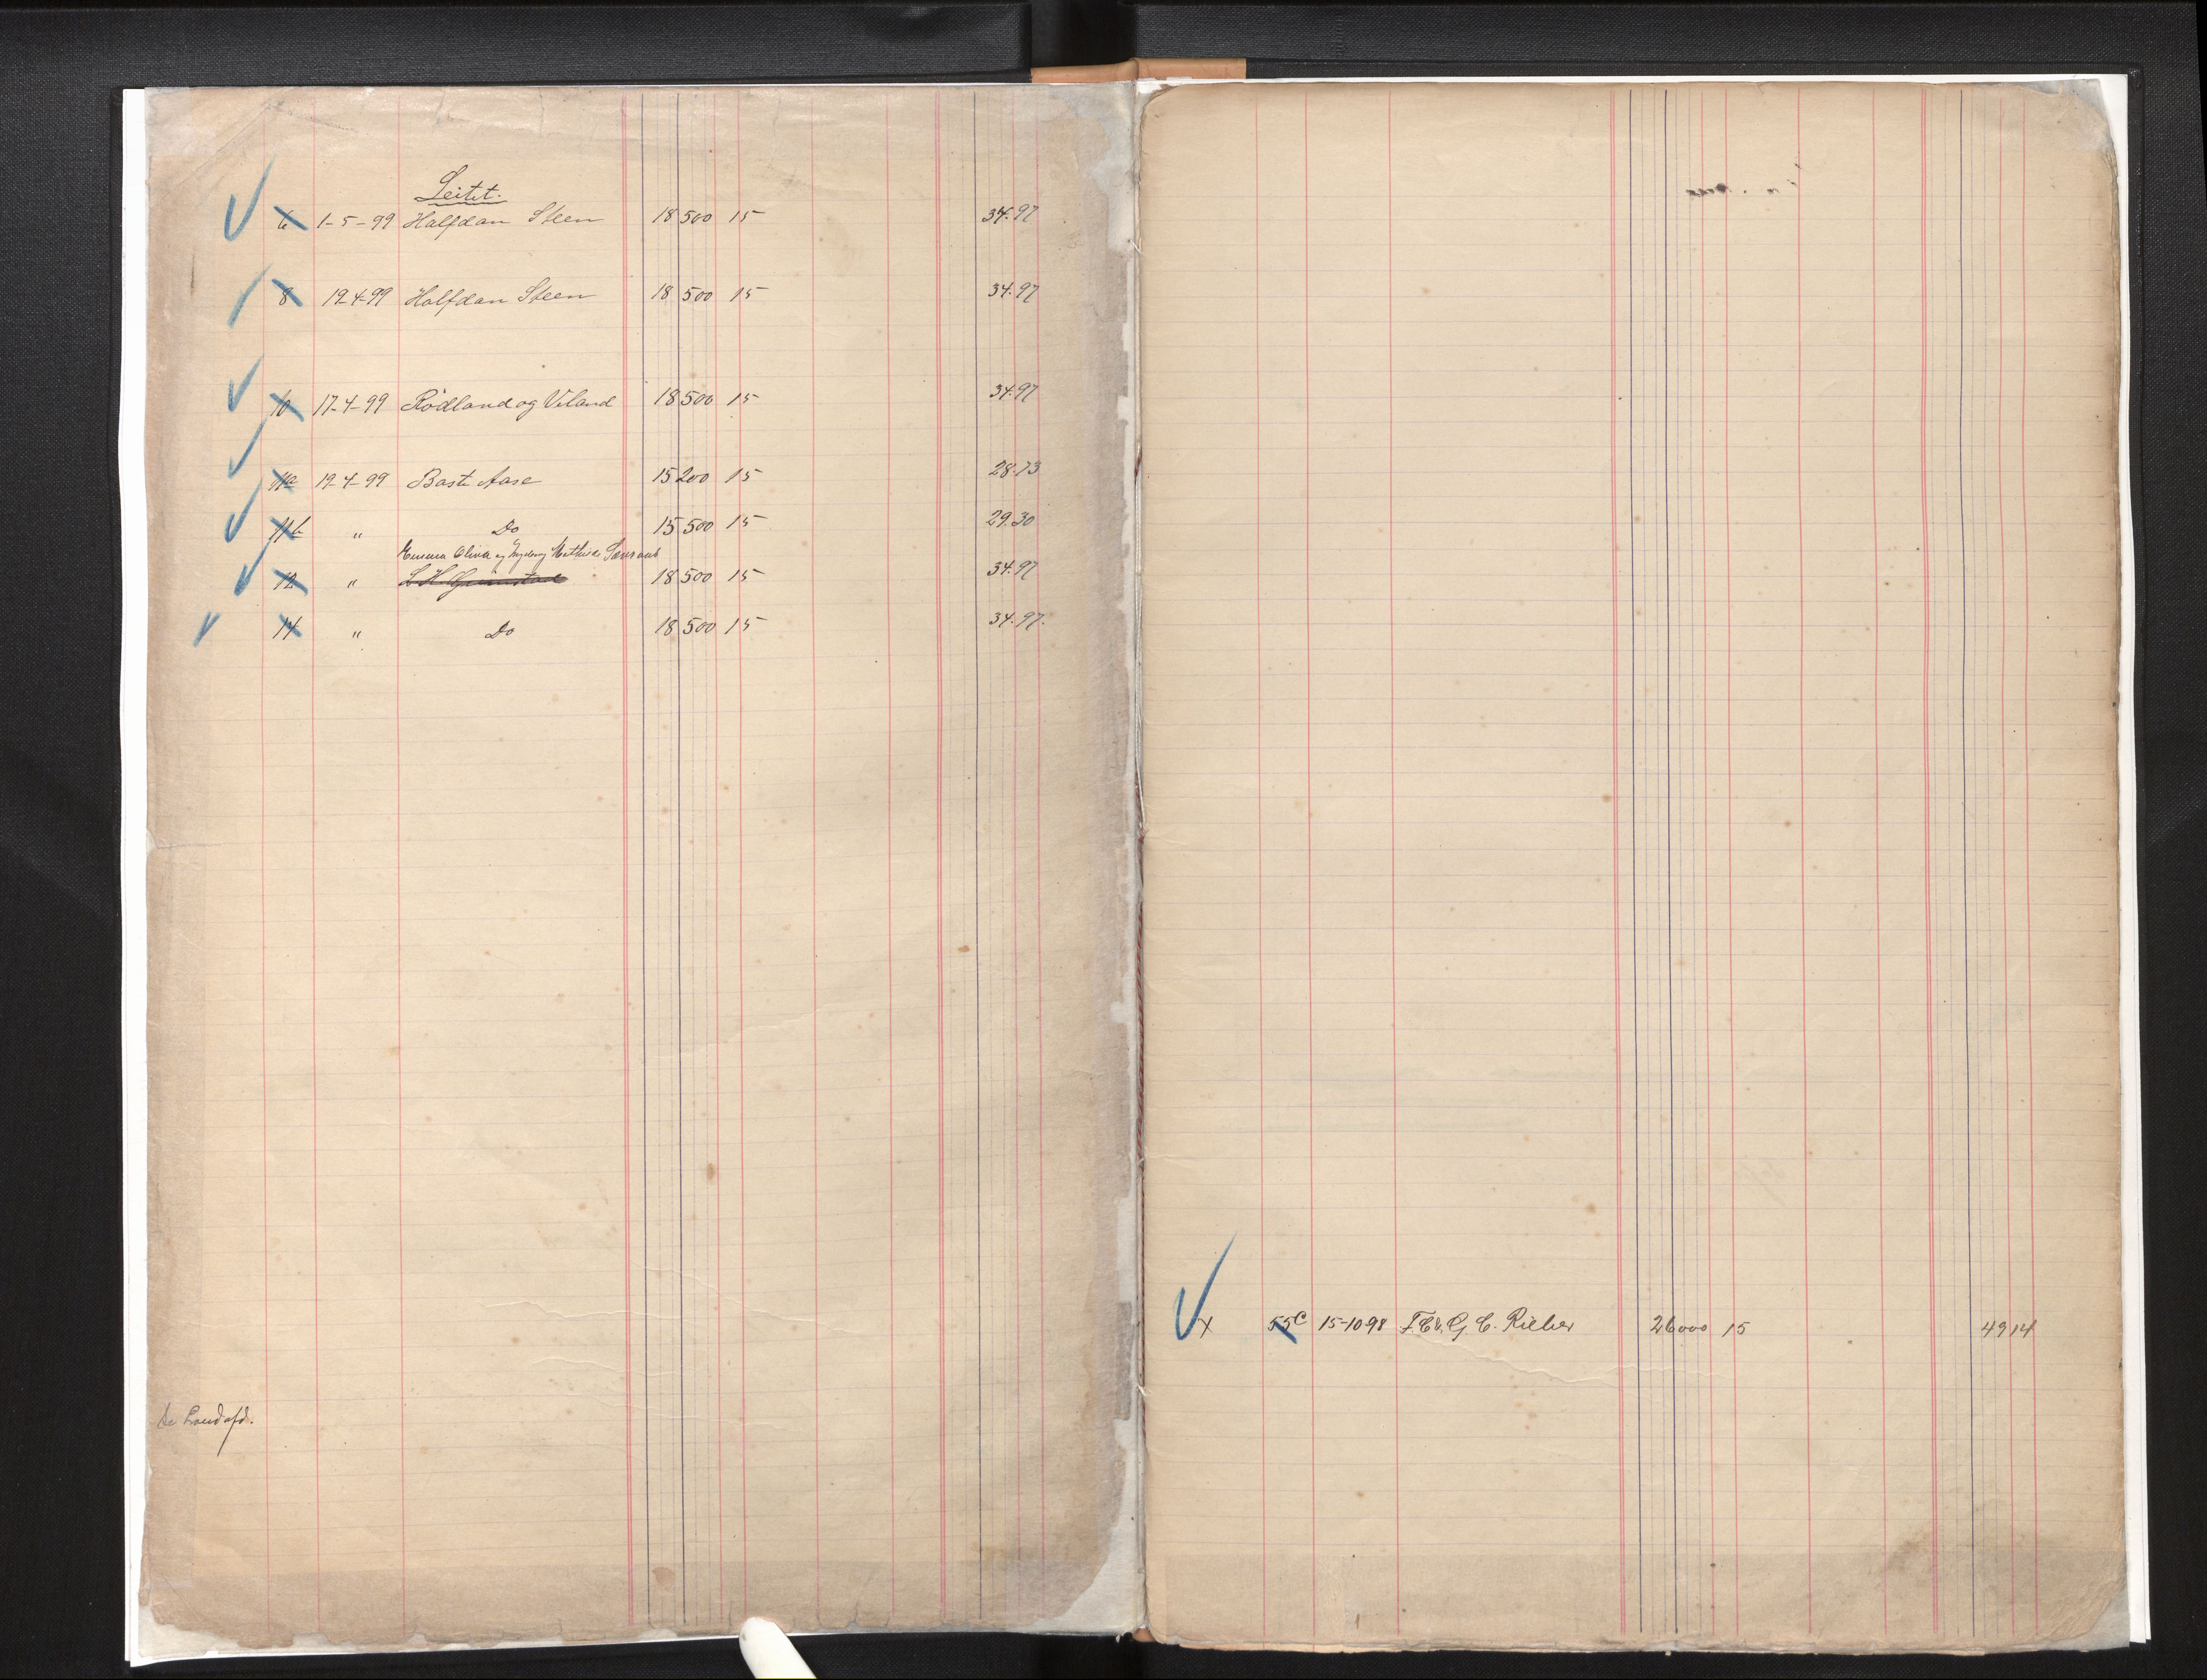 Leitet.
6 1-5-99 Halfdan Steen 18 500 15 34.97
8 19-4-99 Halfdan Steen 18 500 15 34.97
10 17-4-99 Rødland og Viland 18 500 15 34.97
11a 19-4-99 Basti Aase 15 200 15 28.73
11b " Do 15 500 15 29.30
Emma Olivia og Ingeborg Mathilde
12 " 18 500 15 34.97
14 " Do 18 500 15 34.97.
x 55c 15-10-98 G. C. Rieber 26000 15 49 14